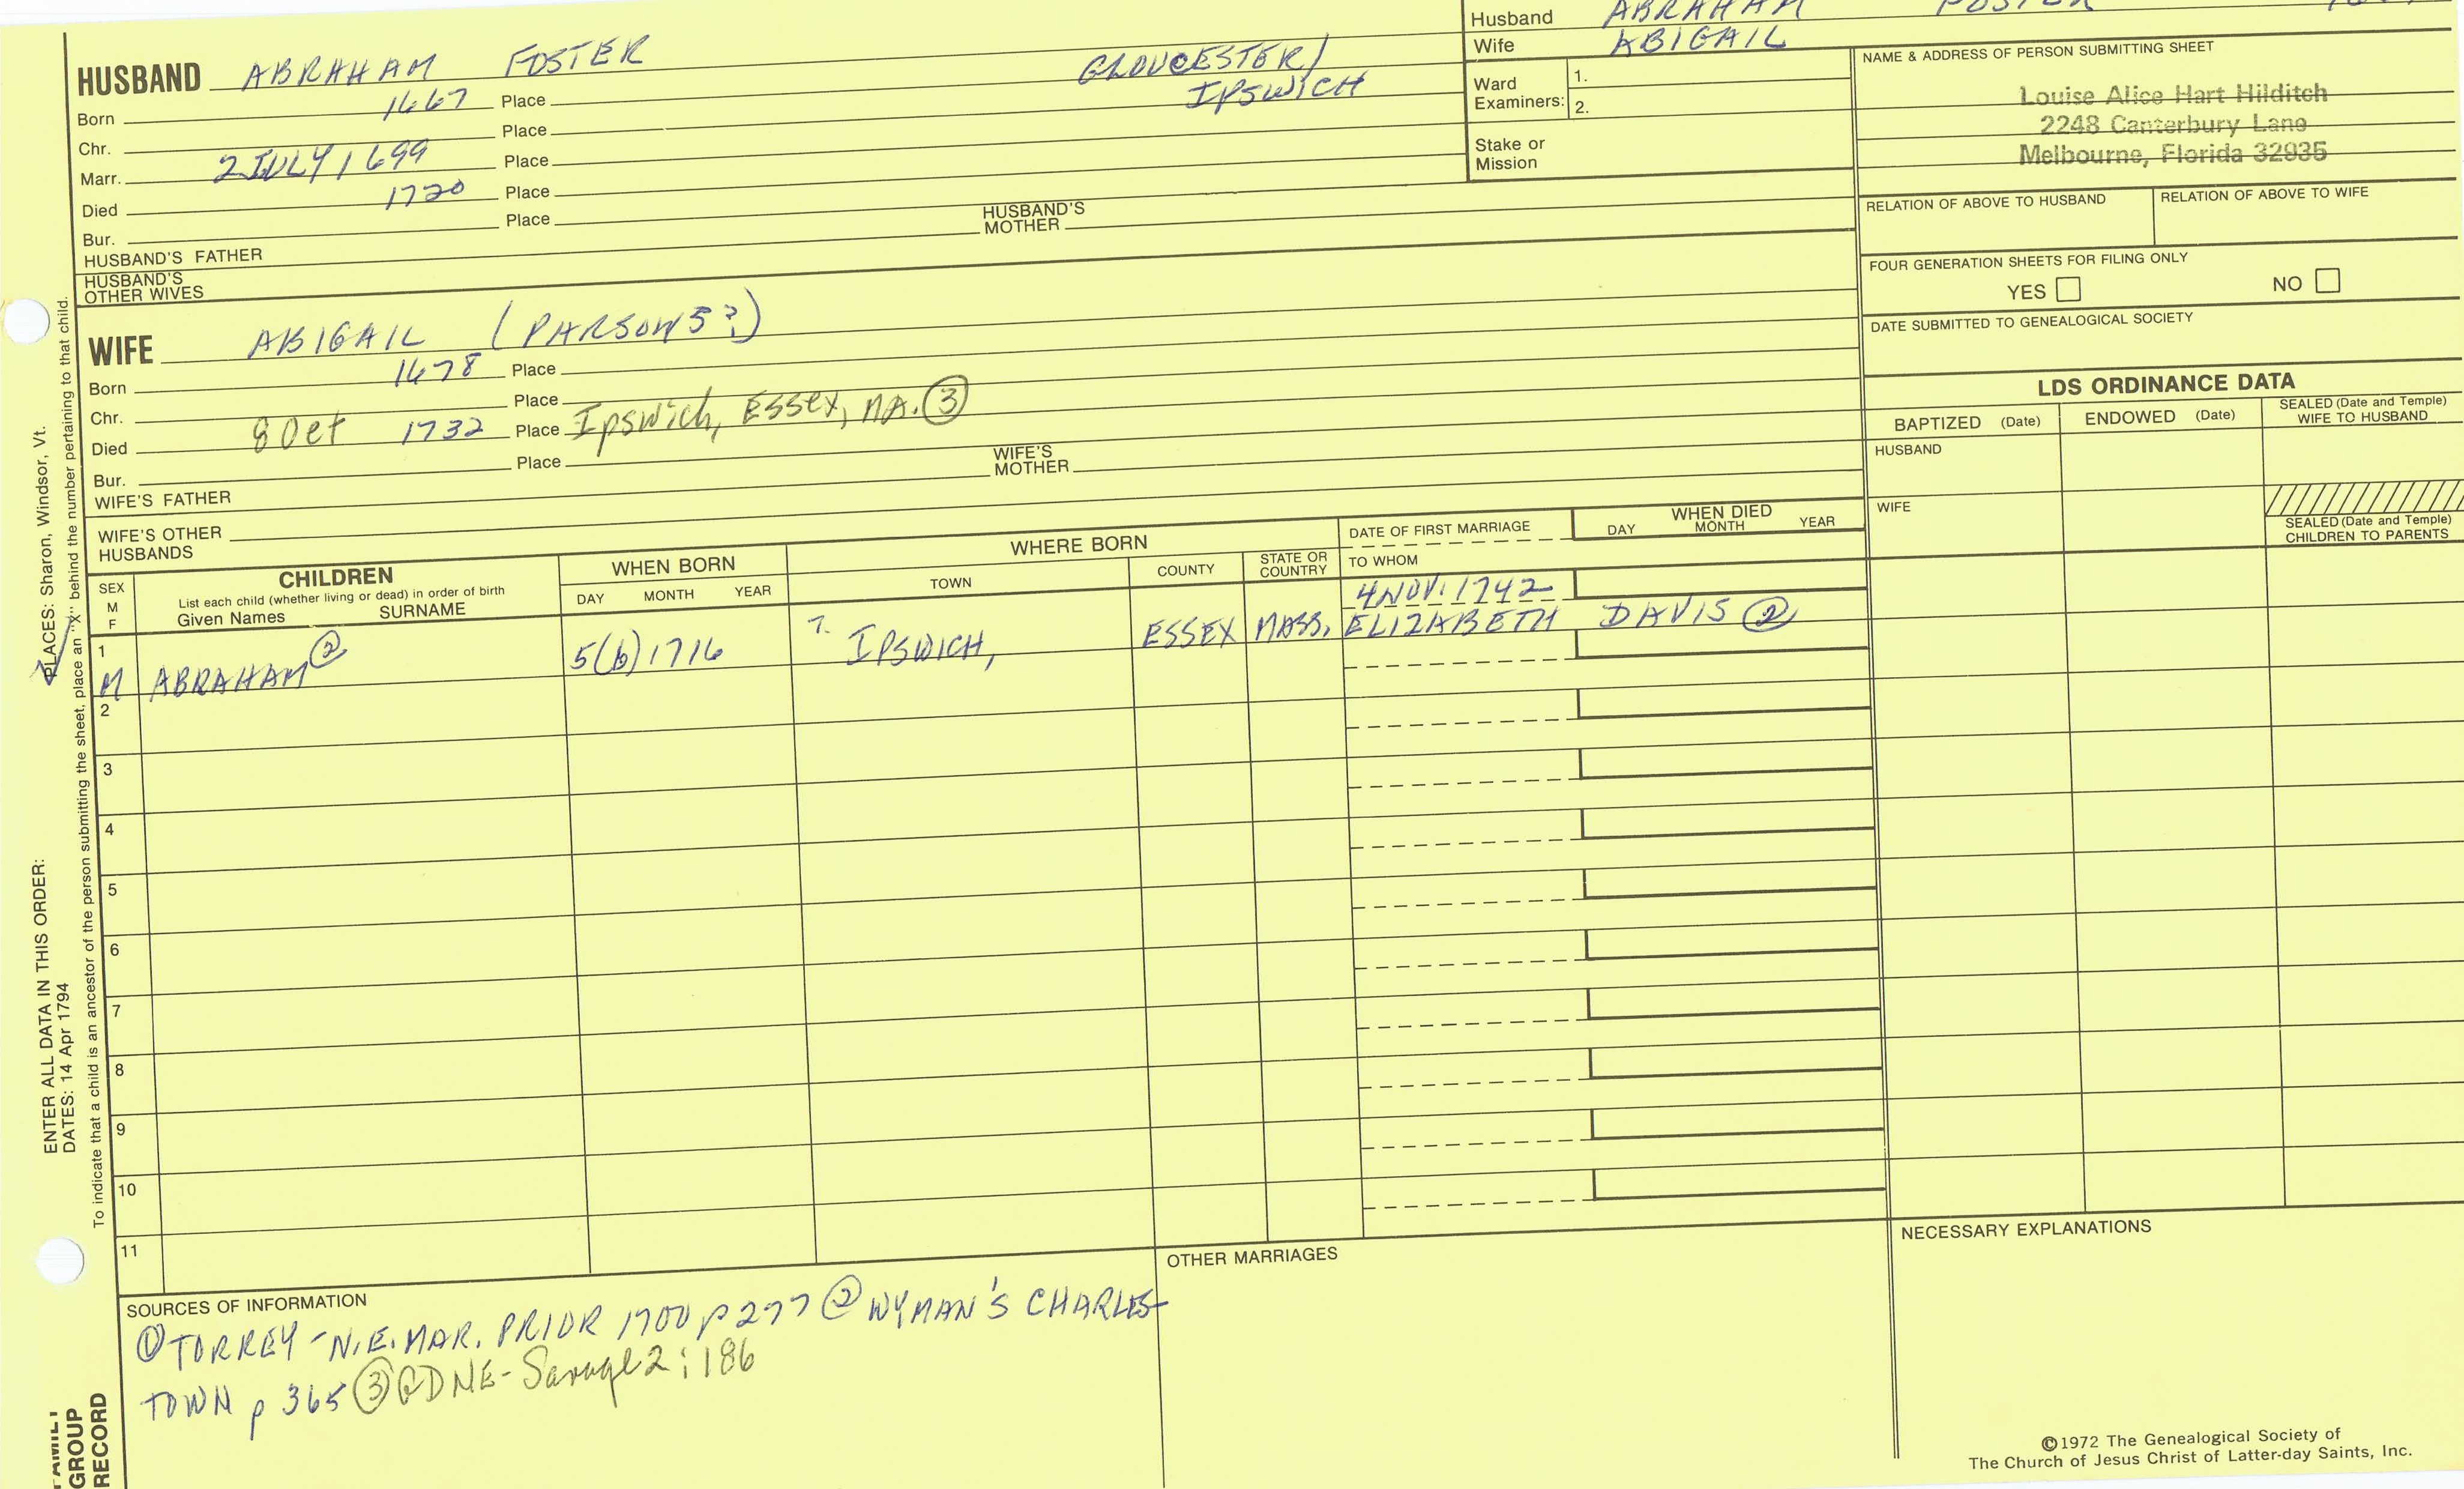 Husband ABRAHAM FOSTER
Wife ABIGAIL
Ward Examiners: 1.
2.
Stake or Mission
NAME & ADDRESS OF PERSON SUBMITTING SHEET
Louise Alice Hart Hilditch
2248 Canterbury Lane
Melbourne, Florida 32935
RELATION OF ABOVE TO HUSBAND
RELATION OF ABOVE TO WIFE
FOUR GENERATION SHEETS FOR FILING ONLY
YES NO
DATE SUBMITTED TO GENEALOGICAL SOCIETY
HUSBAND ABRAHAM FOSTER
Born 1667 Place GLOUCESTER/
IPSWICH
Chr. Place
Marr. 2 JULY 1699 Place
Died 1720 Place
Bur. Place
HUSBAND'S FATHER
HUSBAND'S MOTHER
HUSBAND'S OTHER WIVES
WIFE ABIGAIL (PARSONS?)
Born 1678 Place
Chr. Place
Died 8 Oct 1732 Place Ipswich, Essex, MA. ③
Bur. Place
WIFE'S FATHER
WIFE'S MOTHER
WIFE'S OTHER HUSBANDS
LDS ORDINANCE DATA
BAPTIZED (Date) ENDOWED (Date) SEALED (Date and Temple) WIFE TO HUSBAND
HUSBAND
WIFE
SEALED (Date and Temple) CHILDREN TO PARENTS
SEX M F
CHILDREN
List each child (whether living or dead) in order of birth
Given Names SURNAME
WHEN BORN
DAY MONTH YEAR
WHERE BORN
TOWN COUNTY STATE OR COUNTRY
DATE OF FIRST MARRIAGE
TO WHOM
WHEN DIED
DAY MONTH YEAR
4 NOV. 1742
1 M ABRAHAM ② 5(b)1716 IPSWICH, ESSEX MASS. ELIZABETH DAVIS ②
2
3
4
5
6
7
8
9
10
11
SOURCES OF INFORMATION
① TORREY - N.E. MAR. PRIOR 1700 p 277 ② WYMAN'S CHARLES-
TOWN p 365 ③ GDNE - Savage 2:186
OTHER MARRIAGES
NECESSARY EXPLANATIONS
©1972 The Genealogical Society of
The Church of Jesus Christ of Latter-day Saints, Inc.
ENTER ALL DATA IN THIS ORDER:
DATES: 14 Apr 1794
PLACES: Sharon, Windsor, Vt.
To indicate that a child is an ancestor of the person submitting the sheet, place an "X" behind the number pertaining to that child.
FAMILY
GROUP
RECORD